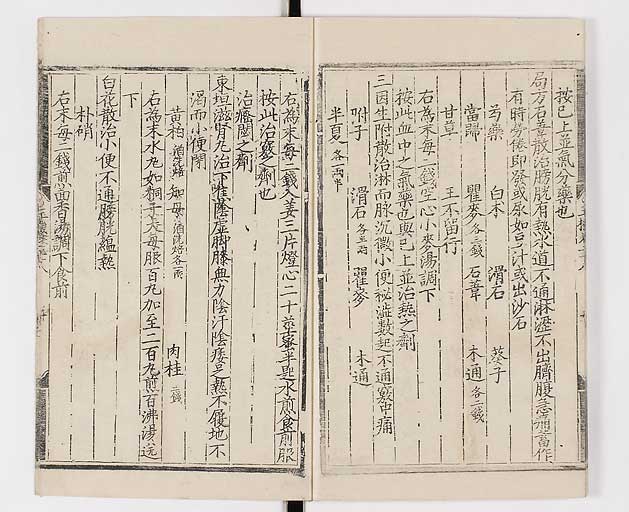 按已上並氣分藥也
局方石葦散治膀胱有熱水道不通淋瀝不出臍腹急痛蓄作
有時勞倦即發或尿如豆汁或出沙石
芍藥 白木 滑石 葵子
當歸 瞿麥各三錢 石葦 木通各二錢
甘草 王不留行
右為末每二錢空心小麥湯調下
按此血中之氣藥也與已上並治熱之劑
三因生附散治淋而脉沉微小便秘澁數起不通竅中痛
附子 滑石各五兩 瞿麥 木通
半夏各一兩半
右為末每二錢姜三片燈心二十莖蜜半匙水煎食前服
按此治寒之劑也
治癃閉之劑
東垣滋腎丸治下焦陰虛脚膝無力陰汗陰痿足熱不履地不
渴而小便閉
黃栢酒洗焙 知母酒洗焙各一兩 肉桂二錢
右為末水丸如桐子大每服百丸加至二百丸煎百沸湯送
下
白花散治小便不通膀胱蘊熱
朴硝
右末每二錢煎茴香湯調下食前